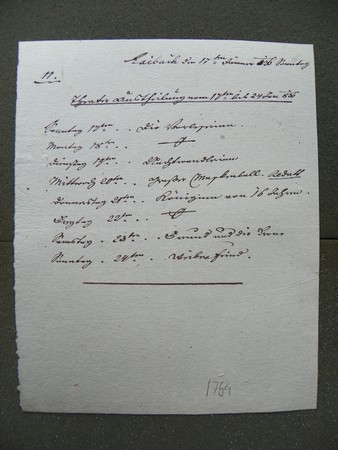 Laibach den 17ten Jänner 836 Sonntag
11.
Theater Austheilung vom 17ten bis 24 Jän 836
Sonntag 17ten . . Die
Montag 18ten . .
Dienstag 19ten . . Nachtwandlerin
Mittwoch 20ten . . Großer Maskenball. Redout
Donnerstag 21ten . . Königinn von 16 Jahren.
Freytag 22ten . .
Samstag . 23ten . . Hund und die
Sonntag . 24ten . . Weiberfeind .
1764